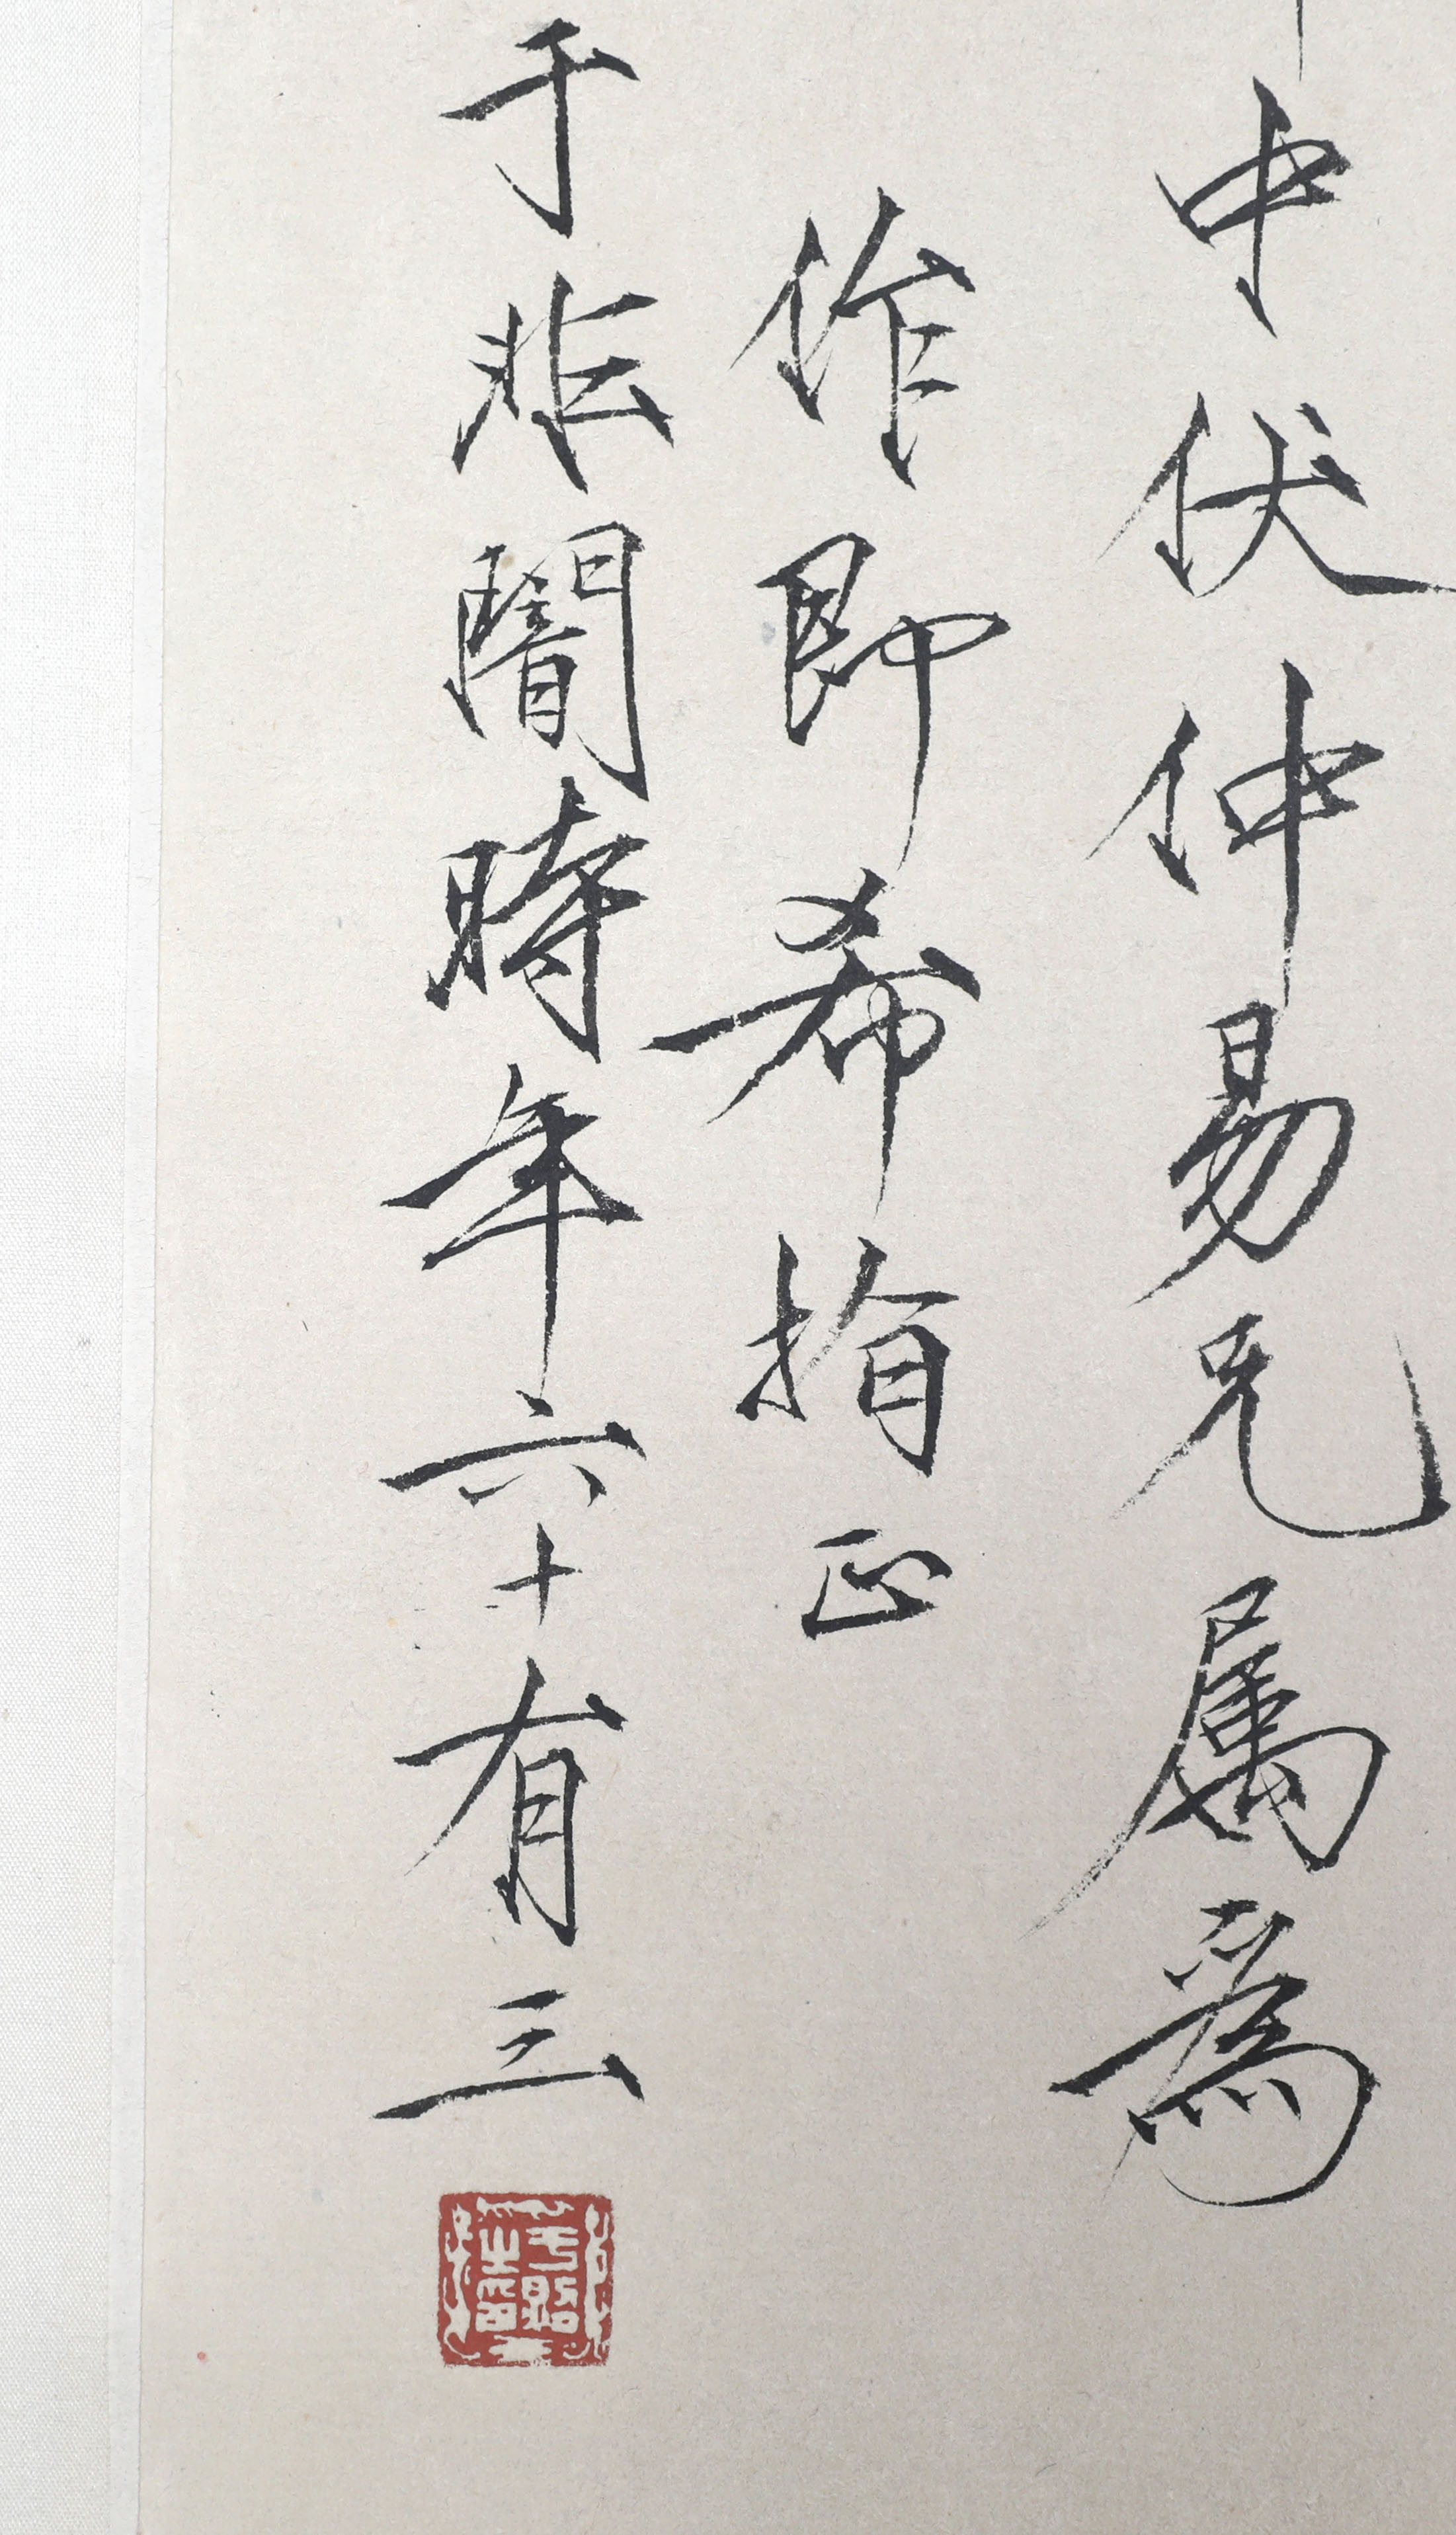 中伏仲易兄属為
作即希指正
于非闇時年六十有三
于照之印